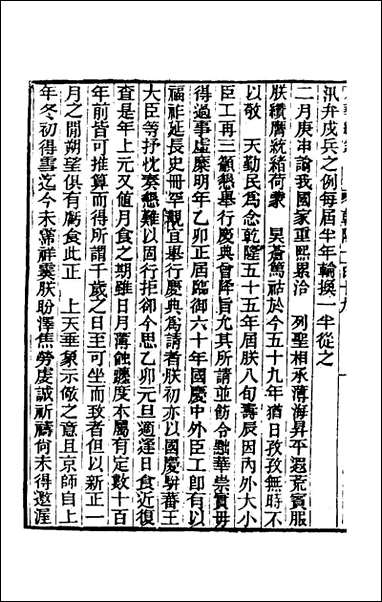 汛弁戍兵之例每屆半年輪換一半從之
二月庚申諭我國家重熙累洽　列聖相承薄海昇平遐荒賓服
朕纘膺統緒荷蒙　昊蒼篤祜於今五十九年猶日孜孜無時不
以敬　天勤民爲念乾隆五十五年屆朕八旬壽辰因內外大小
臣工再三籲懇舉行慶典曾降旨允其所請並飭令黜華崇實毋
得過事虛糜明年乙卯正屆臨御六十年國慶中外臣工卽有以
福祚延長史冊罕觀宜舉行慶典爲請者朕初亦以國慶駢蕃王
大臣等抒忱奏懇難以固行拒卻今思乙卯元旦適逢日食近復
查是年上元又値月食之期雖日月薄蝕躔度本屬有定數十百
年前皆可推算而得所謂千歲之日至可坐而致者但以新正一
月之閒朔望俱有虧食此正　上天垂象示儆之意且京師自上
年冬初得雪迄今未霈祥霙朕盼澤焦勞虔誠祈禱尙未得邀渥